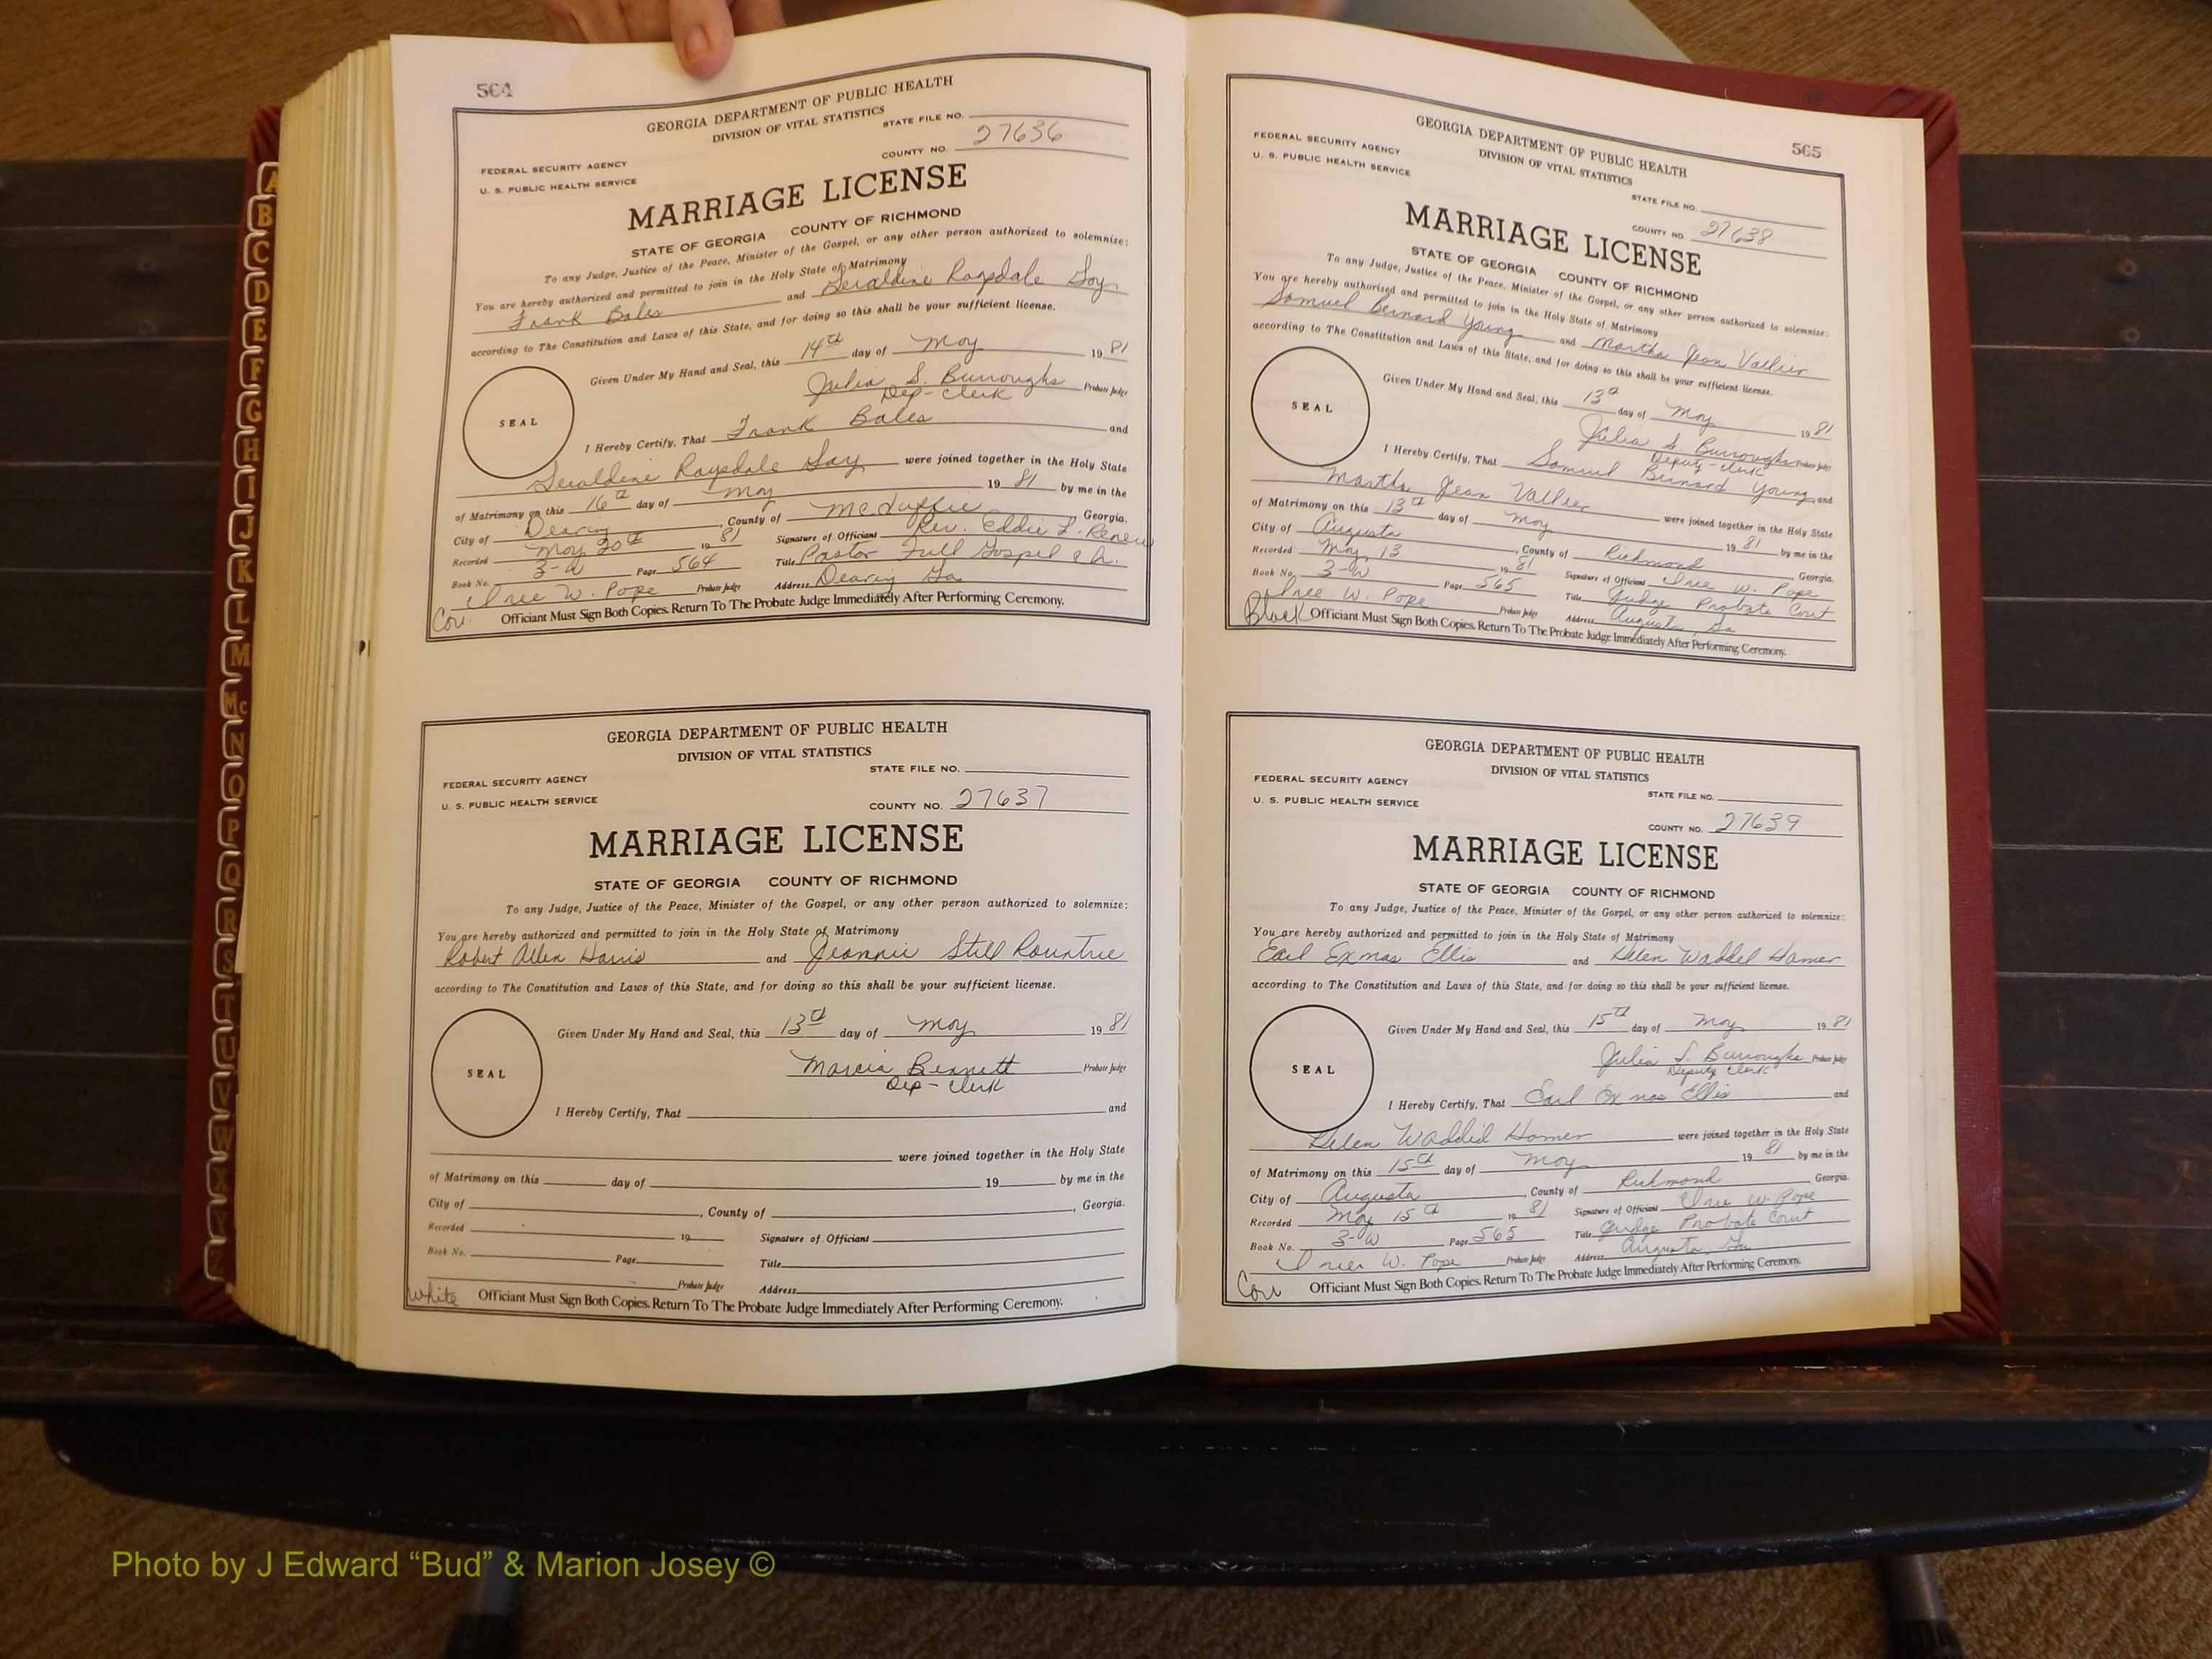 564
GEORGIA DEPARTMENT OF PUBLIC HEALTH
DIVISION OF VITAL STATISTICS
STATE FILE NO.
FEDERAL SECURITY AGENCY
COUNTY NO. 27636
U. S. PUBLIC HEALTH SERVICE
MARRIAGE LICENSE
STATE OF GEORGIA COUNTY OF RICHMOND
To any Judge, Justice of the Peace, Minister of the Gospel, or any other person authorized to solemnize:
You are hereby authorized and permitted to join in the Holy State of Matrimony
Frank Bales and Geraldine Ragsdale
according to The Constitution and Laws of this State, and for doing so this shall be your sufficient license.
Given Under My Hand and Seal, this 14th day of May 1981
Julia S. Burroughs Probate Judge
Dep-Clerk
SEAL
I Hereby Certify, That Frank Bales and
Geraldine Ragsdale were joined together in the Holy State
of Matrimony on this 16th day of May 1981 by me in the
City of Dearing, County of McDuffie, Georgia.
Recorded May 20th 1981 Signature of Officiant Rev. Eddie L. Renew
Book No. 3-W Page 564 Title Pastor Full Gospel Ch.
Iree W. Pope Probate Judge Address Dearing Ga
Cau. Officiant Must Sign Both Copies. Return To The Probate Judge Immediately After Performing Ceremony.
GEORGIA DEPARTMENT OF PUBLIC HEALTH
DIVISION OF VITAL STATISTICS
STATE FILE NO.
FEDERAL SECURITY AGENCY
U. S. PUBLIC HEALTH SERVICE
COUNTY NO. 27637
MARRIAGE LICENSE
STATE OF GEORGIA COUNTY OF RICHMOND
To any Judge, Justice of the Peace, Minister of the Gospel, or any other person authorized to solemnize:
You are hereby authorized and permitted to join in the Holy State of Matrimony
Robert Allen Harris and Jeannie Still Rountree
according to The Constitution and Laws of this State, and for doing so this shall be your sufficient license.
Given Under My Hand and Seal, this 13th day of May 1981
Marcia Bennett Probate Judge
Dep-Clerk
SEAL
I Hereby Certify, That and
were joined together in the Holy State
of Matrimony on this day of 19 by me in the
City of , County of , Georgia.
Recorded 19 Signature of Officiant
Book No. Page Title
Probate Judge Address
White Officiant Must Sign Both Copies. Return To The Probate Judge Immediately After Performing Ceremony.
565
GEORGIA DEPARTMENT OF PUBLIC HEALTH
DIVISION OF VITAL STATISTICS
FEDERAL SECURITY AGENCY
U. S. PUBLIC HEALTH SERVICE
STATE FILE NO.
COUNTY NO. 27638
MARRIAGE LICENSE
STATE OF GEORGIA COUNTY OF RICHMOND
To any Judge, Justice of the Peace, Minister of the Gospel, or any other person authorized to solemnize:
You are hereby authorized and permitted to join in the Holy State of Matrimony
Samuel Bernard Young and Martha Jean Vallier
according to The Constitution and Laws of this State, and for doing so this shall be your sufficient license.
Given Under My Hand and Seal, this 13th day of May 1981
Julia S. Burroughs Probate Judge
Deputy-Clerk
SEAL
I Hereby Certify, That Samuel Bernard Young and
Martha Jean Vallier were joined together in the Holy State
of Matrimony on this 13th day of May 1981 by me in the
City of Augusta, County of Richmond Georgia.
Recorded May 13 1981 Signature of Officiant Iree W. Pope
Book No. 3-W Page 565 Title Judge Probate Court
Iree W. Pope Probate Judge Address Augusta, Ga
Black Officiant Must Sign Both Copies. Return To The Probate Judge Immediately After Performing Ceremony.
GEORGIA DEPARTMENT OF PUBLIC HEALTH
DIVISION OF VITAL STATISTICS
FEDERAL SECURITY AGENCY
STATE FILE NO.
U. S. PUBLIC HEALTH SERVICE
COUNTY NO. 27639
MARRIAGE LICENSE
STATE OF GEORGIA COUNTY OF RICHMOND
To any Judge, Justice of the Peace, Minister of the Gospel, or any other person authorized to solemnize:
You are hereby authorized and permitted to join in the Holy State of Matrimony
Earl Exmas Ellis and Helen Waddel Hamer
according to The Constitution and Laws of this State, and for doing so this shall be your sufficient license.
Given Under My Hand and Seal, this 15th day of May 1981
Julia S. Burroughs Probate Judge
Deputy Clerk
SEAL
I Hereby Certify, That Earl Exmas Ellis and
Helen Hamer were joined together in the Holy State
of Matrimony on this 15th day of May 1981 by me in the
City of Augusta, County of Richmond Georgia.
Recorded May 15th 1981 Signature of Officiant Iree W. Pope
Book No. 3-W Page 565 Title Judge Probate Court
Iree W. Pope Probate Judge Address Augusta, Ga
Cau Officiant Must Sign Both Copies. Return To The Probate Judge Immediately After Performing Ceremony.
A
B
C
D
E
F
G
H
I
J
K
L
M
Mc
N
O
P
Q
R
S
T
U
V
W
Photo by J Edward “Bud” & Marion Josey ©